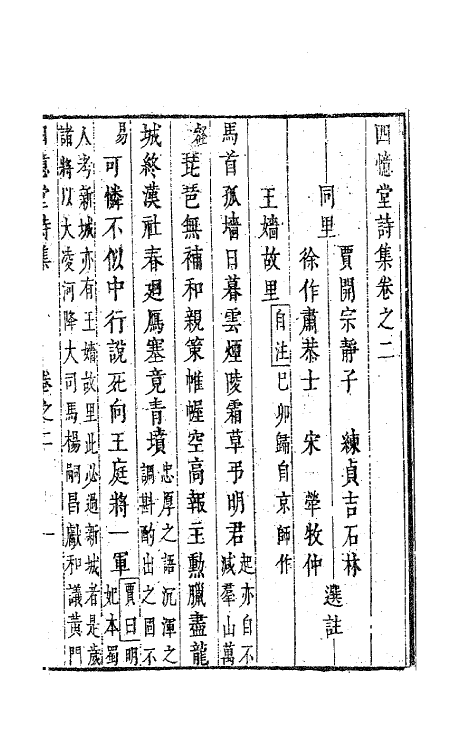 四憶堂詩集卷之二
賈開宗靜子 練貞吉石林
同里 選註
徐作肅恭士 宋犖牧仲
王嬙故里 自注 己卯歸自京師作
馬首孤墻日暮雲煙陵霜草弔明君 起亦自不
減羣山萬
壑 琵琶無補和親策帷幄空高報主勲臘盡龍
城終漢社春廻鴈塞竟青墳 忠厚之語沉渾之
調斟酌出之固不
易 可憐不似中行說死向王庭將一軍 賈曰明
妃本蜀
人考新城亦有王嬙故里此必過新城者是歲
諸將以大凌河降大司馬楊嗣昌獻和議黃門
四憶堂詩集 卷之二 一